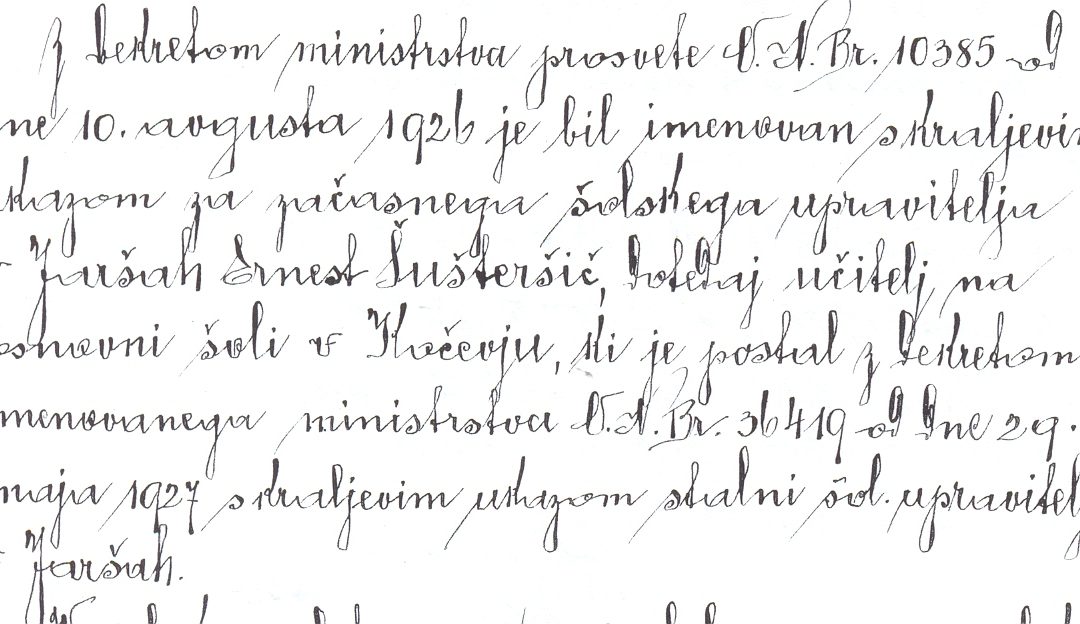 Z dekretom ministrstva prosvete O. N. Br. 10385 od
ne 10. avgusta 1926 je bil imenovan s kraljevim
ukazom za začasnega šolskega upravitelja
v Jaršah Ernest Šušteršič, dotedaj učitelj na
osnovni šoli v Kočevju, ki je postal z dekretom
imenovanega ministrstva O. N. Br. 36419 od dne 29.
maja 1927 s kraljevim ukazom stalni šol. upravitelj
v Jaršah.